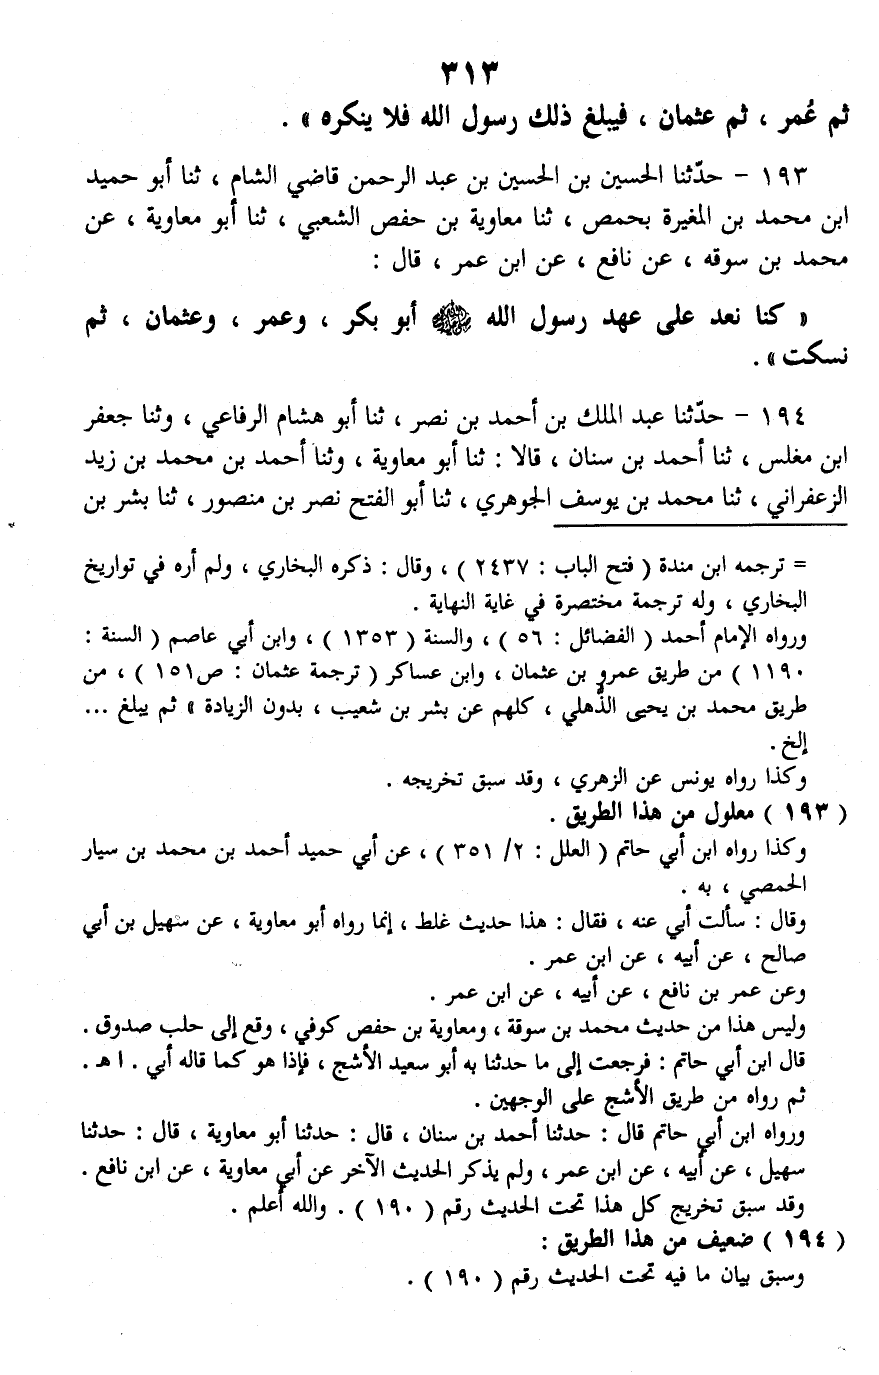 ٣١٣
ثم عُمر ، ثم عثمان ، فيبلغ ذلك رسول الله فلا ينكره » .
١٩٣ – حدّثنا الحسين بن الحسين بن عبد الرحمن قاضي الشام ، ثنا أبو حميد
ابن محمد بن المغيرة بحمص ، ثنا معاوية بن حفص الشعبي ، ثنا أبو معاوية ، عن
محمد بن سوقه ، عن نافع ، عن ابن عمر ، قال :
« كنا نعد على عهد رسول الله ﷺ أبو بكر ، وعمر ، وعثمان ، ثم
نسكت » .
١٩٤ – حدّثنا عبد الملك بن أحمد بن نصر ، ثنا أبو هشام الرفاعي ، وثنا جعفر
ابن مغلس ، ثنا أحمد بن سنان ، قالا : ثنا أبو معاوية ، وثنا أحمد بن محمد بن زيد
الزعفراني ، ثنا محمد بن يوسف الجوهري ، ثنا أبو الفتح نصر بن منصور ، ثنا بشر بن
= ترجمه ابن مندة ( فتح الباب : ٢٤٣٧ ) ، وقال : ذكره البخاري ، ولم أره في تواريخ
البخاري ، وله ترجمة مختصرة في غاية النهاية .
ورواه الإمام أحمد ( الفضائل : ٥٦ ) ، والسنة ( ١٣٥٣ ) ، وابن أبي عاصم ( السنة :
١١٩٠ ) من طريق عمرو بن عثمان ، وابن عساكر ( ترجمة عثمان : ص١٥١ ) ، من
طريق محمد بن يحيى الذُّهلي ، كلهم عن بشر بن شعيب ، بدون الزيادة » ثم يبلغ ...
إلخ .
وكذا رواه يونس عن الزهري ، وقد سبق تخريجه .
( ١٩٣ ) معلول من هذا الطريق .
وكذا رواه ابن أبي حاتم ( العلل : ٢/ ٣٥١ ) ، عن أبي حميد أحمد بن محمد بن سيار
الحمصي ، به .
وقال : سألت أبي عنه ، فقال : هذا حديث غلط ، إنما رواه أبو معاوية ، عن سهيل بن أبي
صالح ، عن أبيه ، عن ابن عمر .
وعن عمر بن نافع ، عن أبيه ، عن ابن عمر .
وليس هذا من حديث محمد بن سوقة ، ومعاوية بن حفص كوفي ، وقع إلى حلب صدوق .
قال ابن أبي حاتم : فرجعت إلى ما حدثنا به أبو سعيد الأشج ، فإذا هو كما قاله أبي . ا هـ .
ثم رواه من طريق الأشج على الوجهين .
ورواه ابن أبي حاتم قال : حدثنا أحمد بن سنان ، قال : حدثنا أبو معاوية ، قال : حدثنا
سهيل ، عن أبيه ، عن ابن عمر ، ولم يذكر الحديث الآخر عن أبي معاوية ، عن ابن نافع .
وقد سبق تخريج كل هذا تحت الحديث رقم ( ١٩٠ ) . والله أعلم .
( ١٩٤ ) ضعيف من هذا الطريق :
وسبق بيان ما فيه تحت الحديث رقم ( ١٩٠ ) .